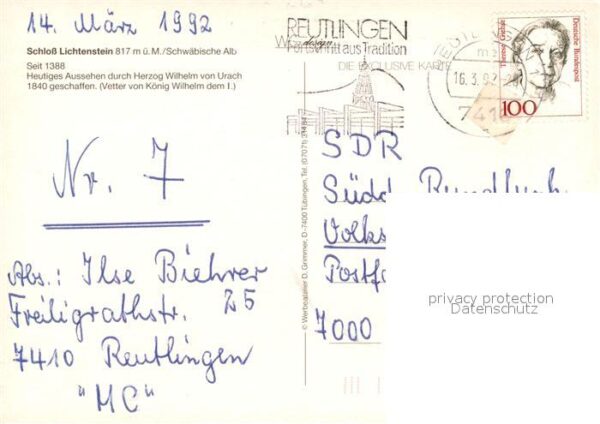 14. März 1992
Schloß Lichtenstein 817 m ü. M./Schwäbische Alb
Seit 1388
Heutiges Aussehen durch Herzog Wilhelm von Urach
1840 geschaffen. (Vetter von König Wilhelm dem I.)
Nr. 7
Abs.: Ilse Biehrer
Freiligrathstr. 25
7410 Reutlingen
"MC"
© Werbeatelier D. Grimmer, D-7400 Tübingen, Tel. (07071)
REUTLINGEN
Fortschritt aus Tradition
DIE EXCLUSIVE KARTE
16.3.92
741
Therese Giehse
Deutsche Bundespost
100
SDR
Südd. Rundfunk
Volks
Postf
7000
privacy protection
Datenschutz